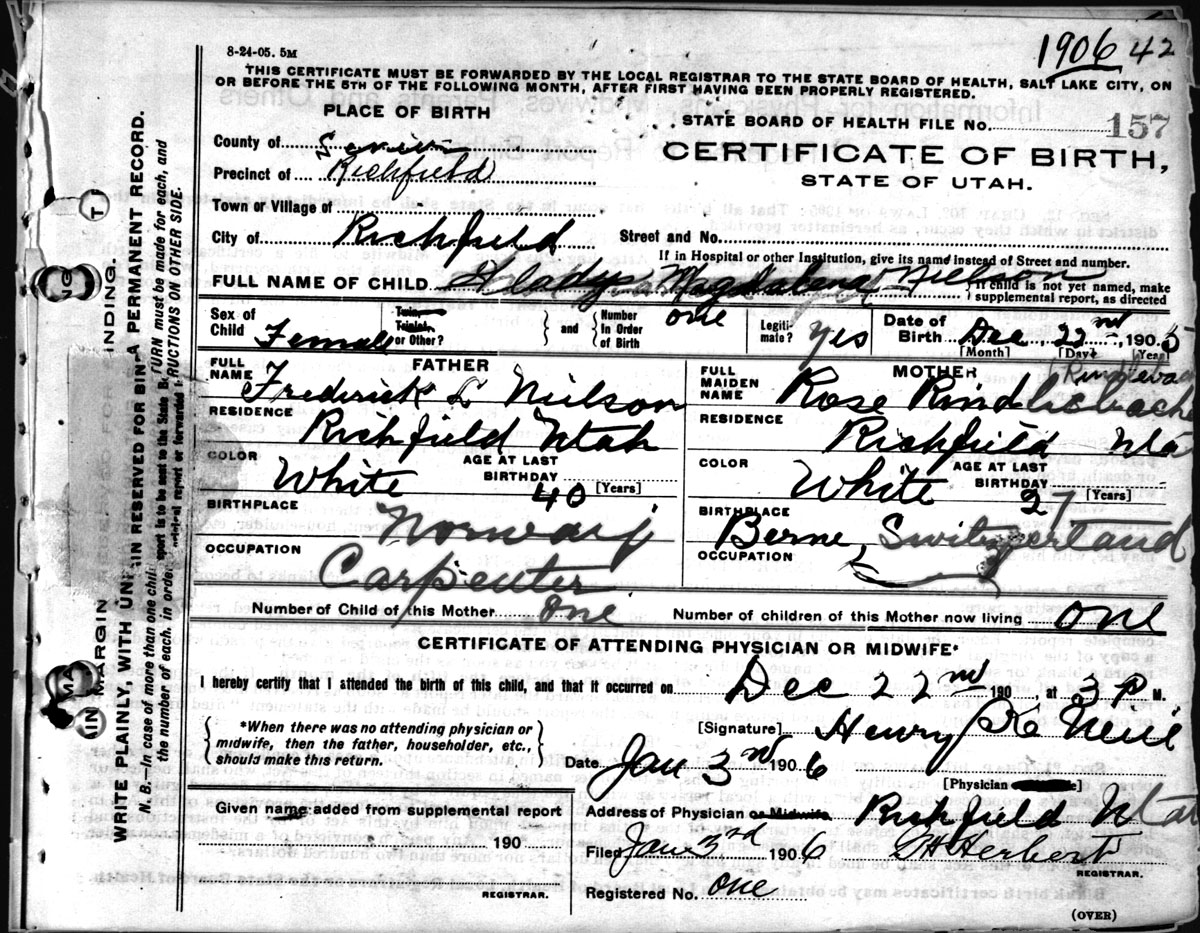 8-24-05. 5M
1906 42
THIS CERTIFICATE MUST BE FORWARDED BY THE LOCAL REGISTRAR TO THE STATE BOARD OF HEALTH, SALT LAKE CITY, ON
OR BEFORE THE 5TH OF THE FOLLOWING MONTH, AFTER FIRST HAVING BEEN PROPERLY REGISTERED.
PLACE OF BIRTH
STATE BOARD OF HEALTH FILE No. 157
County of Sevier
CERTIFICATE OF BIRTH,
Precinct of Richfield
STATE OF UTAH.
Town or Village of
City of Richfield
Street and No.
If in Hospital or other Institution, give its name instead of Street and number.
FULL NAME OF CHILD Gladys Magdalena Nielson
If child is not yet named, make
supplemental report, as directed
Sex of Child Female
Twin, Triplet, or Other?
and
Number In Order of Birth one
Legiti-mate? yes
Date of Birth Dec 22nd 1905
[Month] [Day] [Year]
FATHER
MOTHER
FULL NAME Frederick L Nielson
FULL MAIDEN NAME Rose Rind
RESIDENCE Richfield Utah
RESIDENCE Richfield Uta
COLOR White
AGE AT LAST BIRTHDAY 40 [Years]
COLOR White
AGE AT LAST BIRTHDAY 27 [Years]
BIRTHPLACE Norway
BIRTHPLACE Berne, Switzerland
OCCUPATION Carpenter
OCCUPATION
Number of Child of this Mother one
Number of children of this Mother now living one
CERTIFICATE OF ATTENDING PHYSICIAN OR MIDWIFE*
I hereby certify that I attended the birth of this child, and that it occurred on Dec 22nd 190 , at 3 P M.
*When there was no attending physician or
midwife, then the father, householder, etc.,
should make this return.
[Signature] Henry K Neill
Date Jan 3rd 1906
[Physician
Given name added from supplemental report
190
REGISTRAR.
Address of Physician or Midwife Richfield Utah
Filed Jan 3rd 1906 Herbert
REGISTRAR.
Registered No. one
(OVER)
WRITE PLAINLY, WITH
A PERMANENT RECORD.
N. B.—In case of more than one
must be made for each, and
the number of each, in order
MARGIN
RESERVED FOR